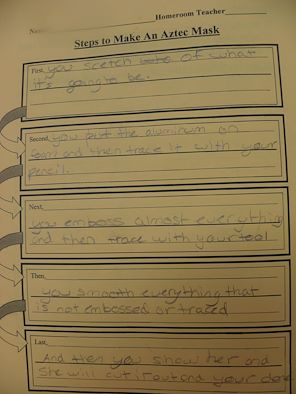 Name Homeroom Teacher
Steps to Make An Aztec Mask
First, you scetch of what
it's going to be.
Second, you put the aluminum on
foam and then trace it with your
pencil.
Next,
you emboss almost everything
and then trace with your tool
Then,
you smooth everything that
is not embossed or traced
Last,
And then you show her and
She will cut it out and your done